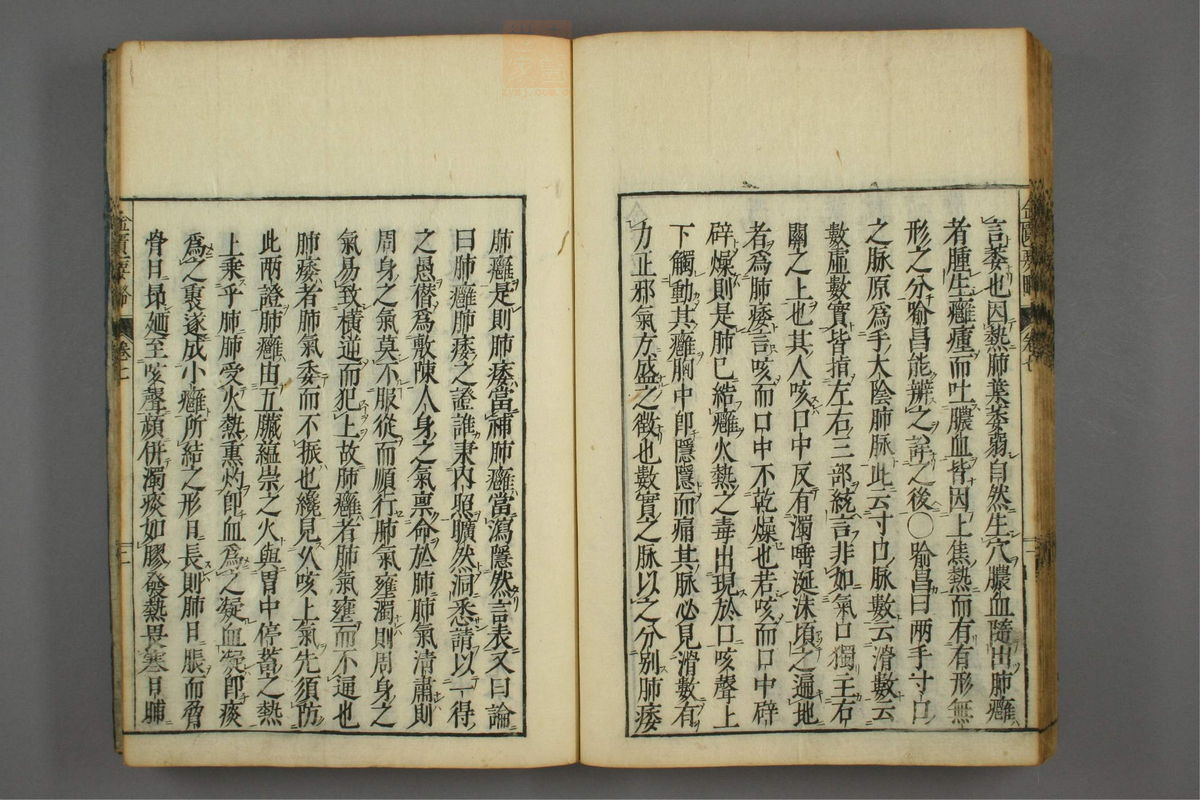 言萎也因熱肺葉萎弱自然生穴膿血隨出肺癰
者腫生癰瘇而吐膿血皆因上焦熱而有有形無
形之分喻昌能辨之詳之後○喻昌曰兩手寸口
之脉原爲手太陰肺脉此云寸口脉數云滑數云
數虛數實皆指左右三部統言非如氣口獨主右
關之上也其人咳口中反有濁唾涎沫頃之遍地
者爲肺痿言咳而口中不乾燥也若咳而口中辟
辟燥則是肺已結癰火熱之毒出現於口咳聲上
下觸動其癰胸中卽隱隱而痛其脉必見滑數有
力正邪氣方盛之徵也數實之脉以之分別肺痿
肺癰是則肺痿當補肺癰當瀉隱然言表又曰論
曰肺癰肺痿之證誰秉內照曠然洞悉請以一得
之愚僭爲敷陳人身之氣禀命於肺肺氣清肅則
周身之氣莫不服從而順行肺氣壅濁則周身之
氣易致橫逆而犯上故肺癰者肺氣壅而不逼也
肺痿者肺氣委而不振也纔見久咳上氣先須防
此兩證肺癰由五臟蘊崇之火與胃中停蓄之熱
上乘乎肺肺受火熱熏灼卽血爲之凝血凝卽痰
爲之裹遂成小癰所結之形日長則肺日脹而脅
骨日昂廼至咳聲頻倂濁痰如膠發熱畏寒日晡
金匱要略
卷七